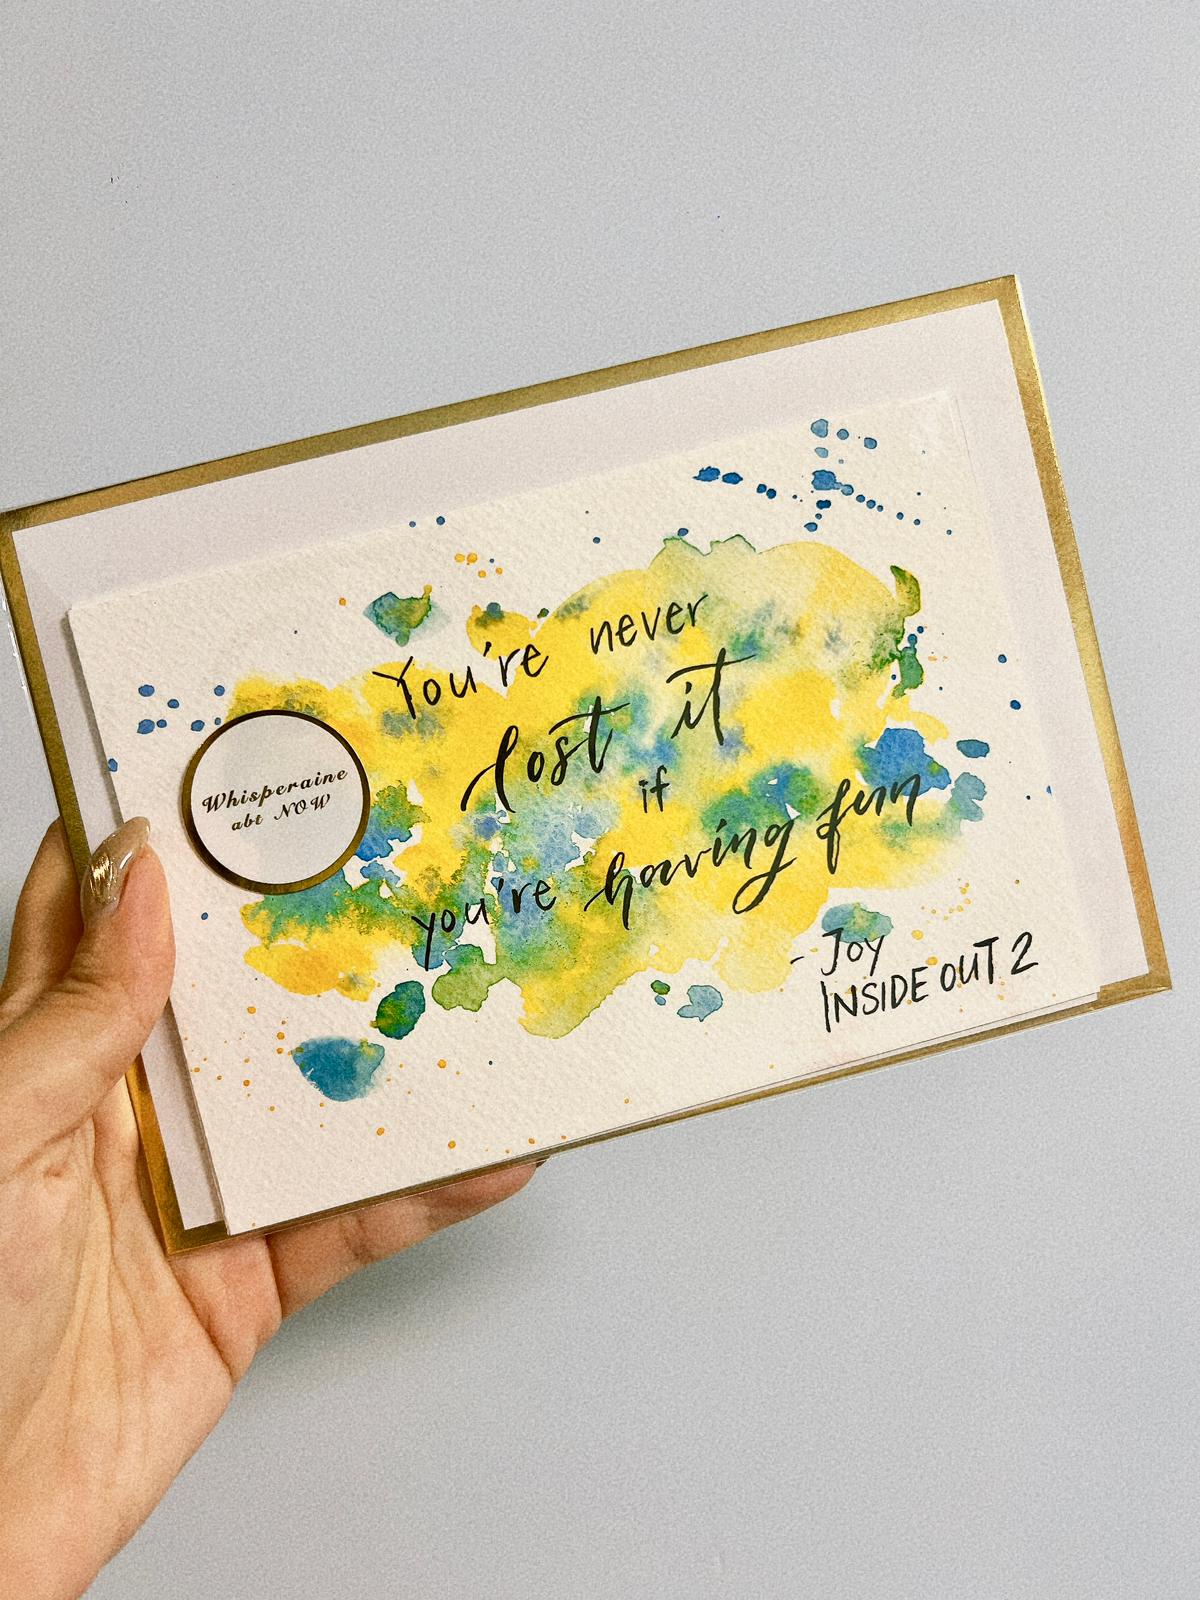 You're never
lost it
if
you're having fun
- Joy
INSIDE OUT 2
Whisperaine
abt NOW